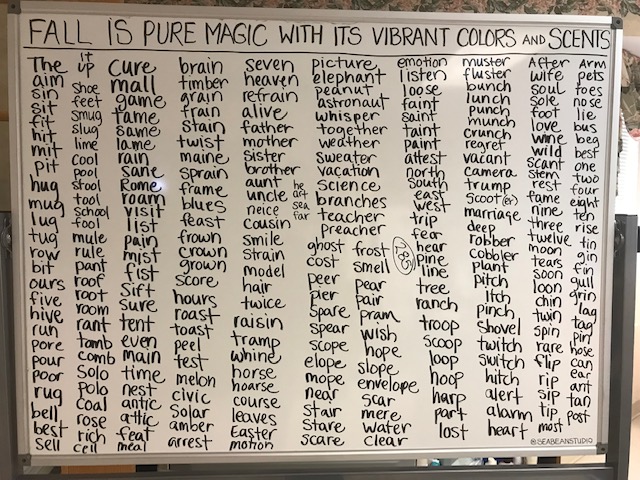 FALL IS PURE MAGIC WITH ITS VIBRANT COLORS AND SCENTS
The
aim
sin
sit
fit
hit
mit
pit
hug
mug
lug
tug
row
bit
ours
five
hive
run
pore
pour
poor
rug
bell
best
sell
it
up
shoe
feet
smug
slug
lime
cool
pool
stool
tool
school
fool
mule
rule
pant
roof
root
room
rant
tomb
comb
Solo
Polo
Coal
rose
rich
cell
cure
mall
game
same
lame
rain
sane
Rome
roam
visit
list
pain
mist
fist
sift
sure
tent
even
main
time
nest
antic
attic
feat
meal
brain
timber
grain
train
stain
twist
maine
sprain
frame
blues
feast
frown
crown
grown
score
hours
roast
toast
peel
test
melon
civic
Solar
amber
arrest
seven
heaven
refrain
alive
father
mother
sister
brother
aunt
uncle
neice
cousin
smile
strain
model
hair
twice
raisin
tramp
whine
horse
hoarse
course
leaves
Easter
motion
he
at
sea
far
picture
elephant
peanut
astronaut
whisper
together
weather
sweater
vacation
science
branches
teacher
preacher
ghost
cost
peer
pier
Spare
spear
scope
elope
mope
near
stair
Stare
scare
frost
smell
pear
pair
pram
wish
hope
slope
envelope
scar
mere
water
clear
785
emotion
listen
loose
faint
saint
taint
paint
attest
north
South
east
west
trip
fear
hear
pine
line
tree
ranch
troop
scoop
loop
hoop
harp
part
lost
muster
fluster
bunch
lunch
punch
munch
crunch
regret
vacant
camera
trump
scoot(er)
marriage
deep
robber
cobbler
plant
pitch
itch
pinch
shovel
twitch
switch
hitch
alert
alarm
heart
After
wife
soul
sole
foot
love
wine
wild
scant
stem
rest
fame
nine
three
twelve
moon
tears
soon
loon
chin
twin
spin
rare
flip
rip
sip
tip
most
Arm
pets
toes
nose
lie
bus
beg
best
one
two
four
eight
ten
rise
tin
gin
fin
gull
grin
lag
tag
pin
hose
can
ear
ant
tan
post
@SEABEANSTUDIO